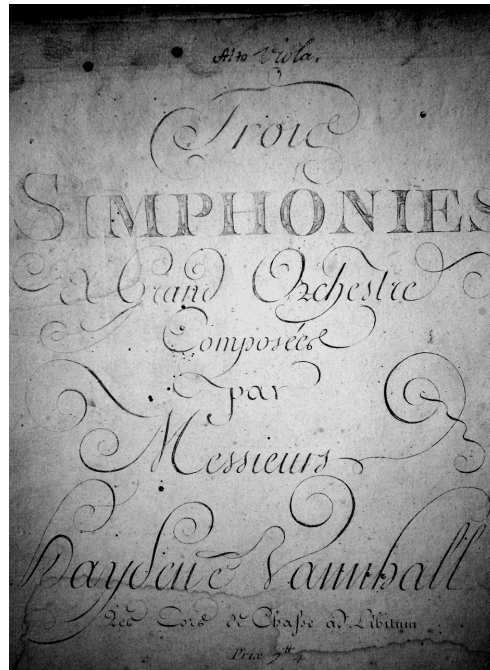 Alto Viola.
Trois
SIMPHONIES
a Grand Orchestre
Composées
par
Messieurs
Hayden e Vannhall
Les Cors de Chasse ad Libitum
Prix